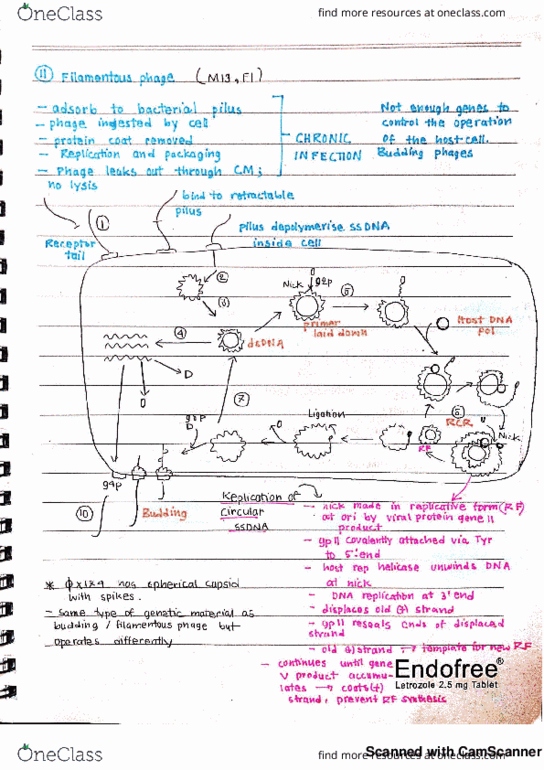 OneClass
find more resources at oneclass.com
(11) Filamentous phage (M13, F1)
- adsorb to bacterial pilus
- phage ingested by cell
- protein coat removed
- Replication and packaging
- Phage leaks out through CM;
no lysis
- CHRONIC
INFECTION
Not enough genes to
control the operation
of the host cell.
Budding phages
bind to retractable
pilus
1
Receptor
tail
Pilus depolymerise. SSDNA
inside cell
2
Nick
g2p
5
3
primer
laid down
Host DNA
pol
4
dsDNA
D
7
Ligation
6
RCR
Nick
RF
D
g4p
10
Budding
Replication of
Circular
SSDNA
- nick made in replicative form (RF)
at ori by viral protein gene II
product
- gpII covalently attached via Tyr
to 5' end
- host rep helicase unwinds DNA
at nick
- DNA replication at 3' end
- displaces old (+) strand
- gpII reseals ends of displaced
strand
- old (+) strand → template for new RF
- continues until gene
V product accumu-
lates → coats (+)
strand, prevent RF synthesis
* has spherical capsid
with spikes.
- Same type of genetic material as
budding / filamentous phage but
operates differently
Endofree®
Letrozole 2.5 mg Tablet
OneClass
find more resources at oneclass.com
Scanned with CamScanner